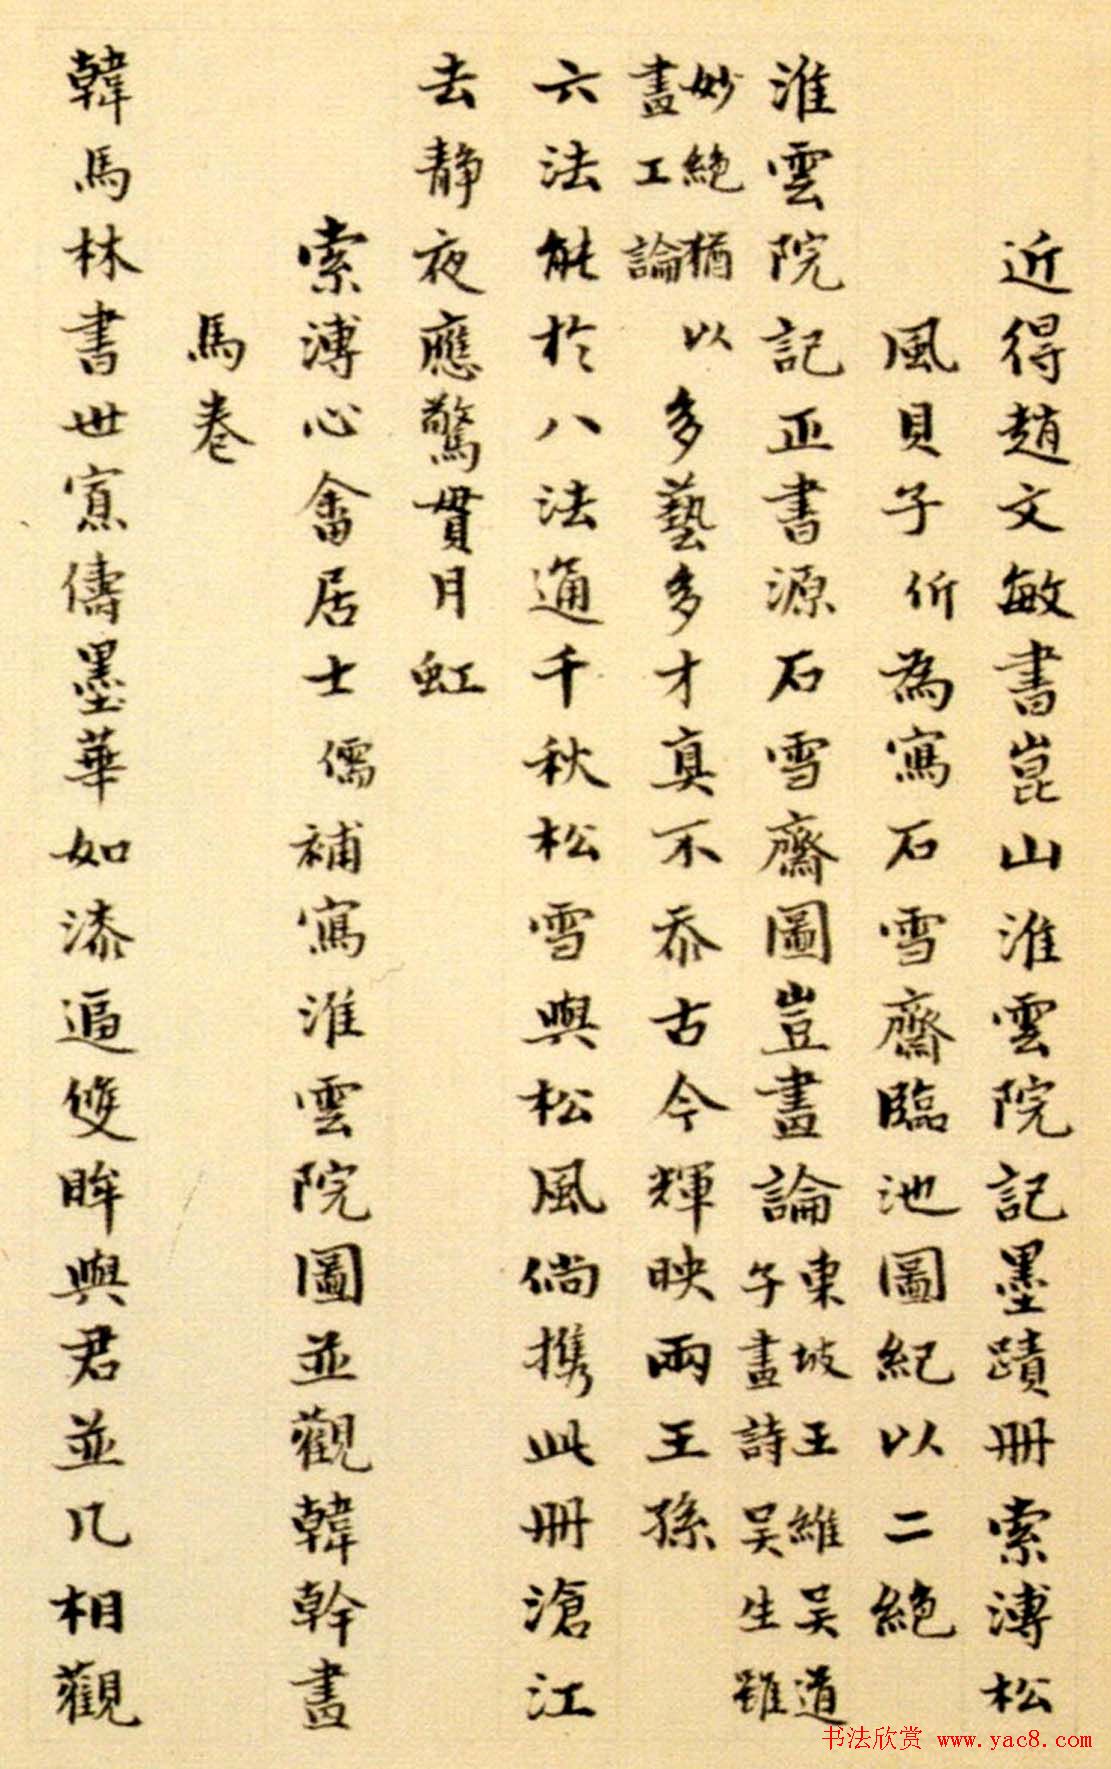 近得趙文敏書崑山淮雲院記墨蹟冊索溥松
風貝子所為寫石雪齋臨池圖紀以二絕
淮雲院記正書源石雪齋圖豈畫論東坡王維吳道
子畫詩吳生雖
妙絕猶以
畫工論多藝多才真不忝古今輝映兩王孫
六法能於八法通千秋松雪與松風倘携此冊滄江
去静夜應驚貫月虹
索溥心畬居士儒補寫淮雲院圖並觀韓幹畫
馬卷
韓馬林書世寡儔墨華如漆逼雙眸與君並几相觀
书法欣赏 www.yac8.com